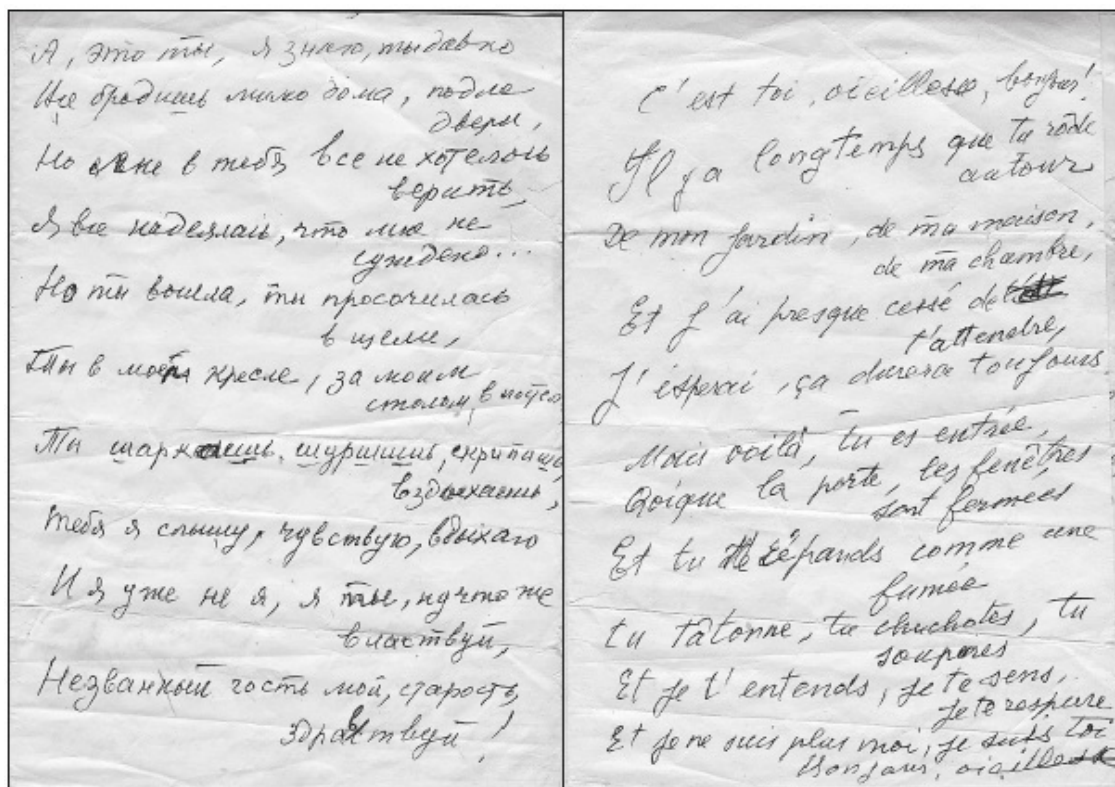 А, это ты, я знаю, ты давно
Уже бродишь мимо дома, подле
двери,
Но мне в тебя все не хотелось
верить,
Я все надеялась, что мне не
суждено...
Но ты вошла, ты просочилась
в щели,
Ты в моем кресле, за моим
столом, в постел
Ты шаркаешь, шуршишь, скрипишь,
вздыхаешь,
Тебя я слышу, чувствую, вдыхаю
И я уже не я, я ты, ну что же
властвуй,
Незванный гость мой, старость,
здравствуй!
C'est toi, vieillesse, bonjour!
Il y a longtemps que tu rôde
autour
De mon jardin, de ma maison,
de ma chambre,
Et j'ai presque cessé de
t'attendre,
J'esperai, ça durera toujours
Mais voilà, tu es entrée,
Qoique la porte, les fenêtres
sont fermées
Et tu te répands comme une
fumée
tu tâtonne, tu chuchotes, tu
soupires
Et je t'entends, je te sens,
je te respire
Et je ne suis plus moi, je suis toi
Bonjour, vieillesse